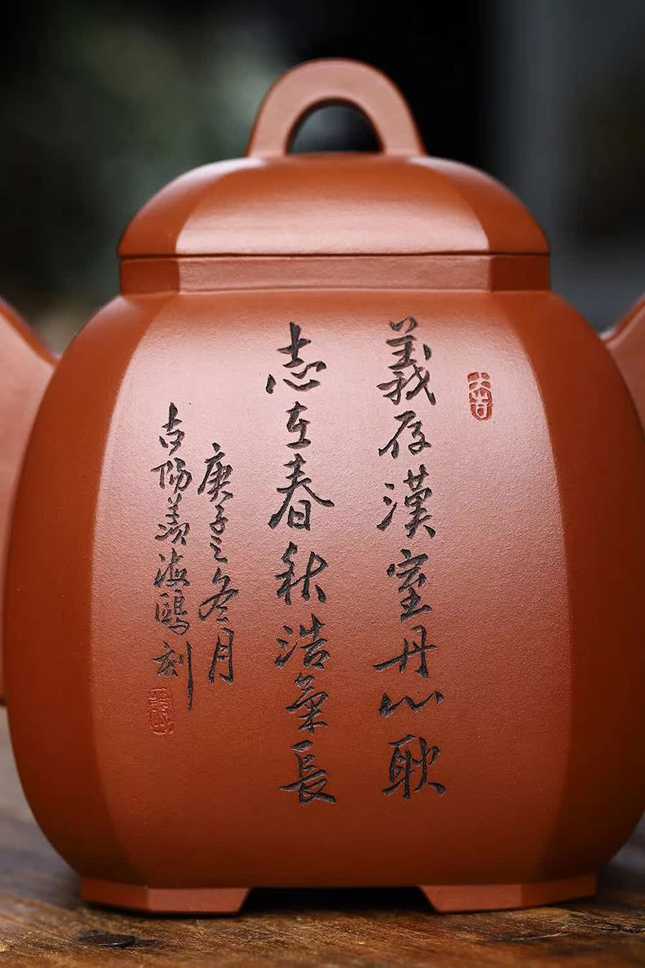 大吉
義存漢室丹心耿
志在春秋浩氣長
庚子之冬月
古陽羨海鷗刻